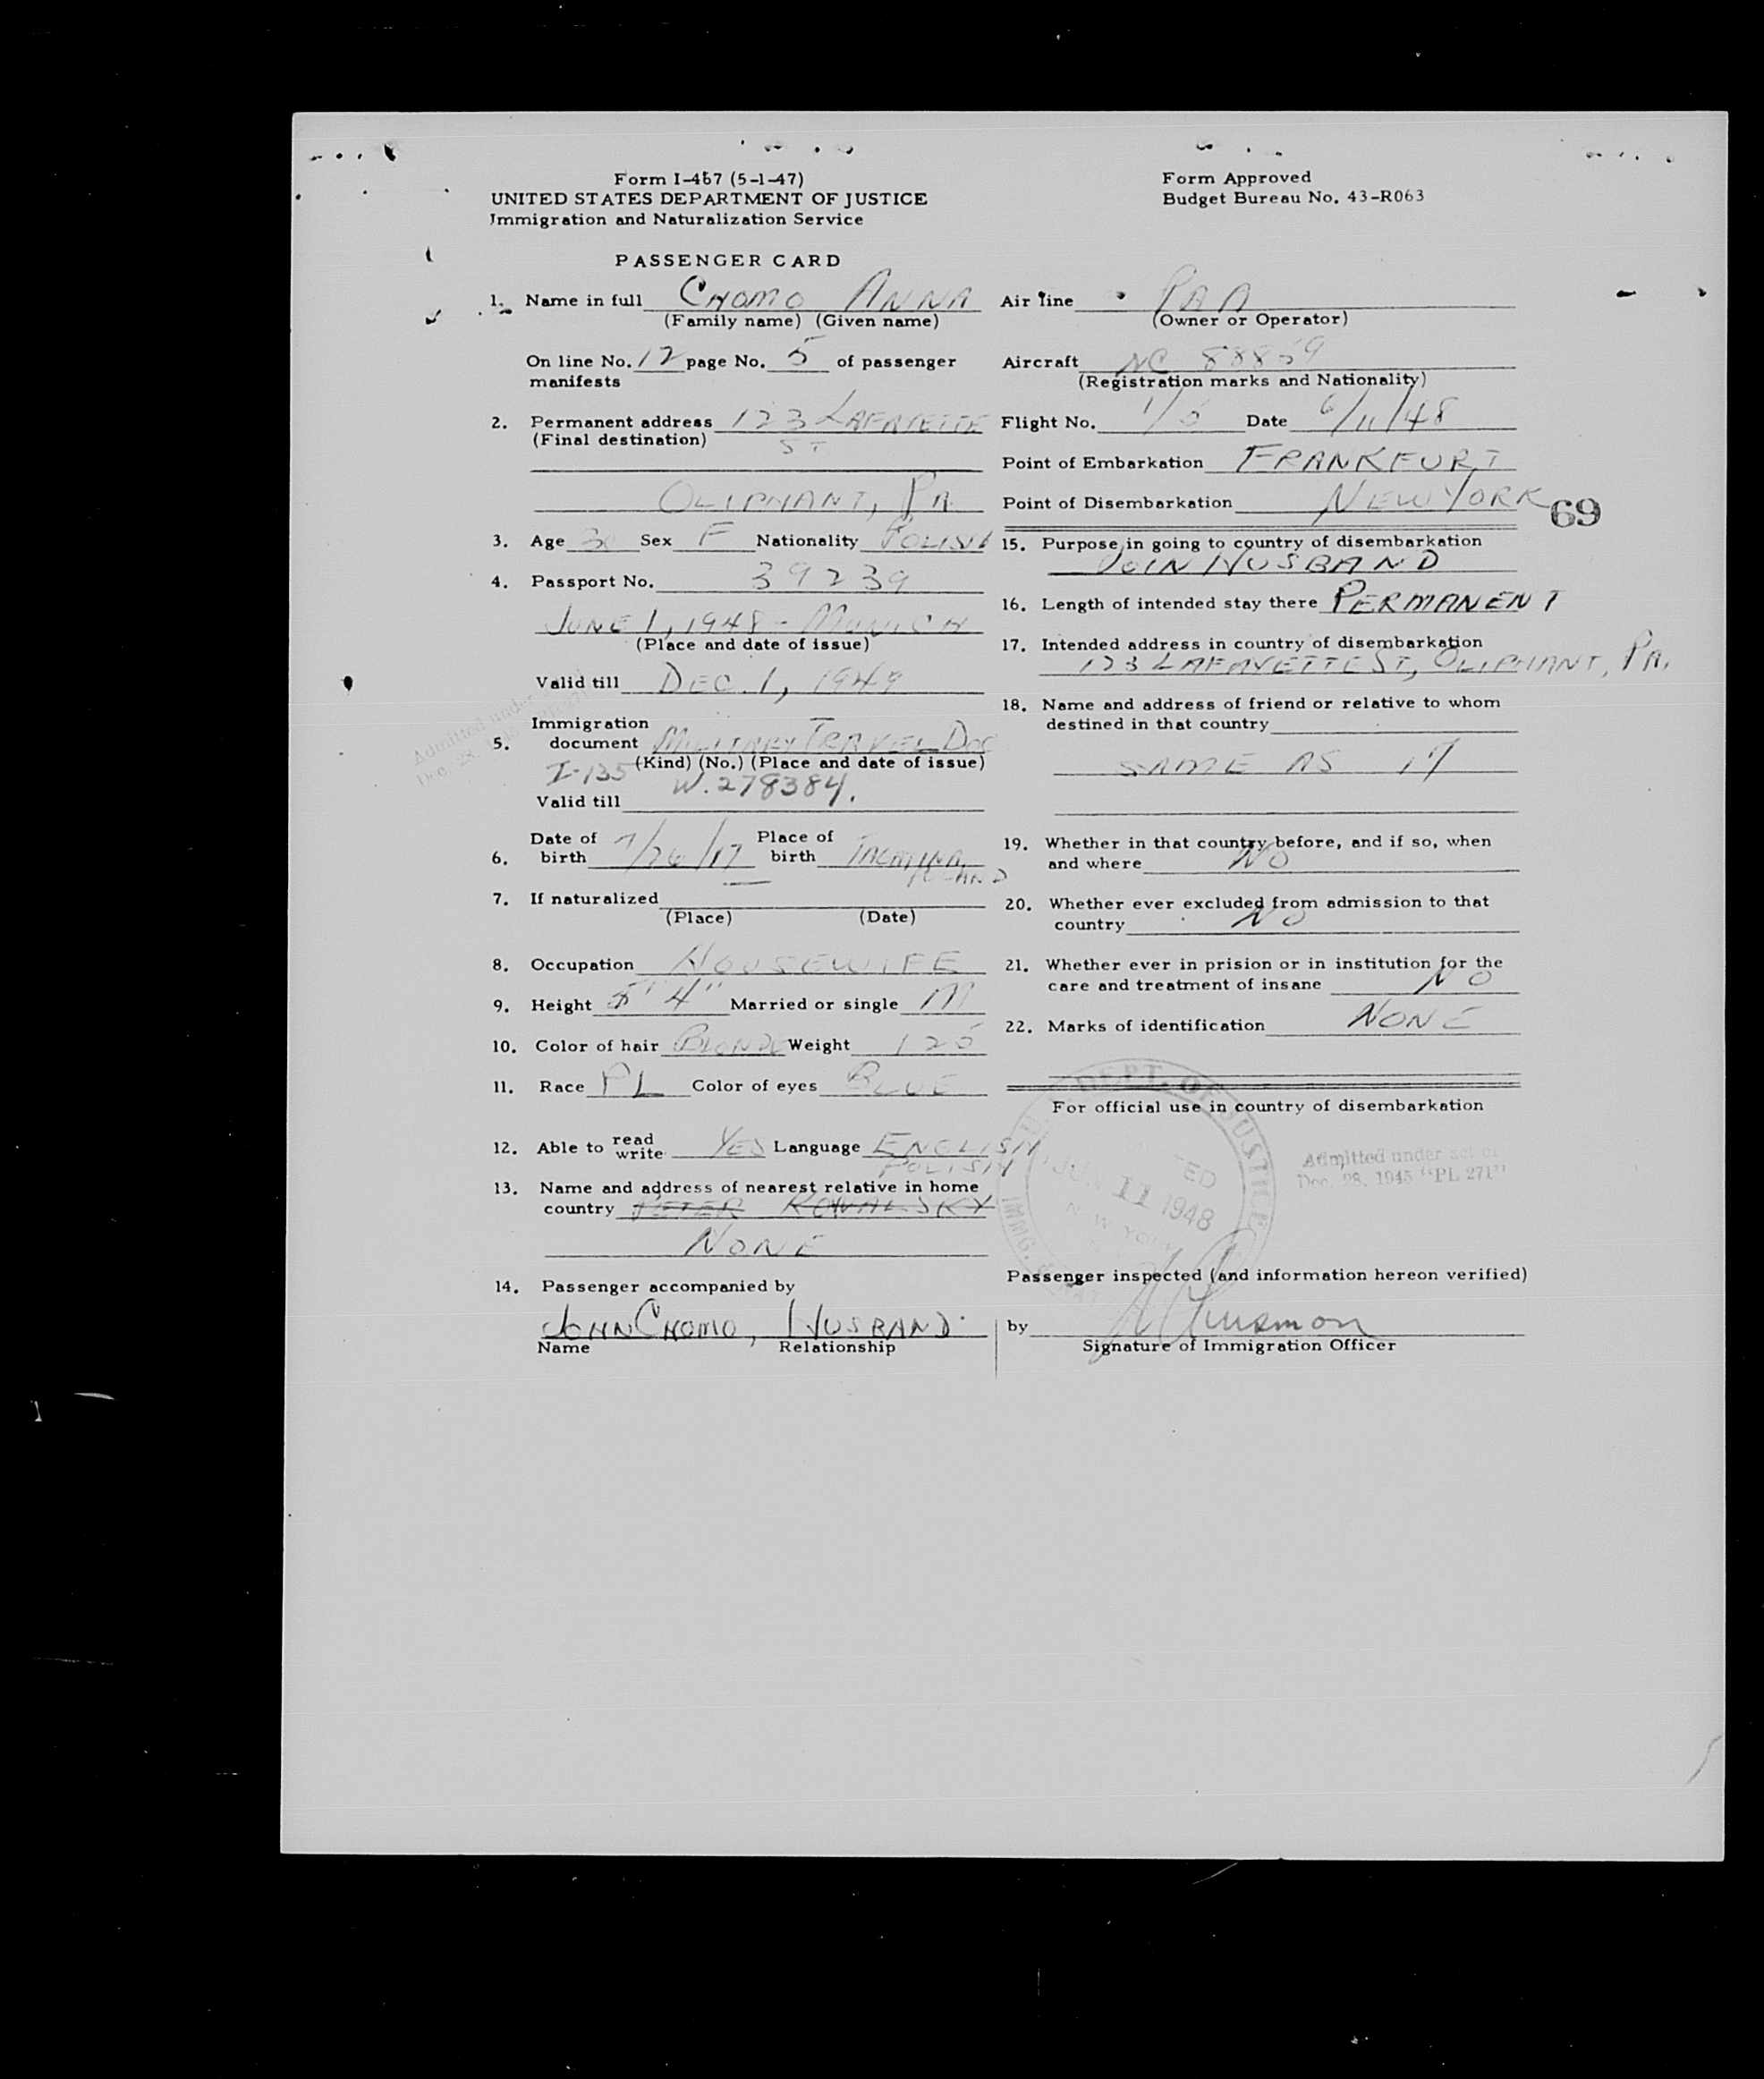 Form I-457 (5-1-47)
UNITED STATES DEPARTMENT OF JUSTICE
Immigration and Naturalization Service
Form Approved
Budget Bureau No. 43-R063
PASSENGER CARD
1. Name in full CHOMO ANNA
(Family name) (Given name)
On line No. 12 page No. 5 of passenger
manifests
2. Permanent address 123 LAFAYETTE
(Final destination) ST
OLIPHANT, PA
3. Age 30 Sex F Nationality POLISH
4. Passport No. 39239
JUNE 1, 1948 - MUNICH
(Place and date of issue)
Valid till DEC. 1, 1949
Admitted under
Dec. 28, 1945
Immigration
5. document MILITARY TRAVEL DOC
(Kind) (No.) (Place and date of issue)
I-135 W. 278384.
Valid till
Date of Place of
6. birth 7/26/17 birth
POLAND
7. If naturalized
(Place) (Date)
8. Occupation HOUSEWIFE
9. Height 5' 4" Married or single M
10. Color of hair BLONDE Weight 125
11. Race PL Color of eyes BLUE
12. Able to read write YES Language ENGLISH
POLISH
13. Name and address of nearest relative in home
country PETER KOWALSKY
NONE
14. Passenger accompanied by
JOHN CHOMO, HUSBAND
Name Relationship
Air line PAA
(Owner or Operator)
Aircraft NC 88859
(Registration marks and Nationality)
Flight No. 1/5 Date 6/11/48
Point of Embarkation FRANKFURT
Point of Disembarkation NEW YORK
69
15. Purpose in going to country of disembarkation
JOIN HUSBAND
16. Length of intended stay there PERMANENT
17. Intended address in country of disembarkation
123 LAFAYETTE ST, OLIPHANT, PA.
18. Name and address of friend or relative to whom
destined in that country
SAME AS 17
19. Whether in that country before, and if so, when
and where NO
20. Whether ever excluded from admission to that
country NO
21. Whether ever in prision or in institution for the
care and treatment of insane NO
22. Marks of identification NONE
For official use in country of disembarkation
DEPT. OF JUSTICE
JUN 11 1948
NEW YORK
IMMG.
Admitted under act of
Dec. 28, 1945 "PL 271"
Passenger inspected (and information hereon verified)
by
Signature of Immigration Officer